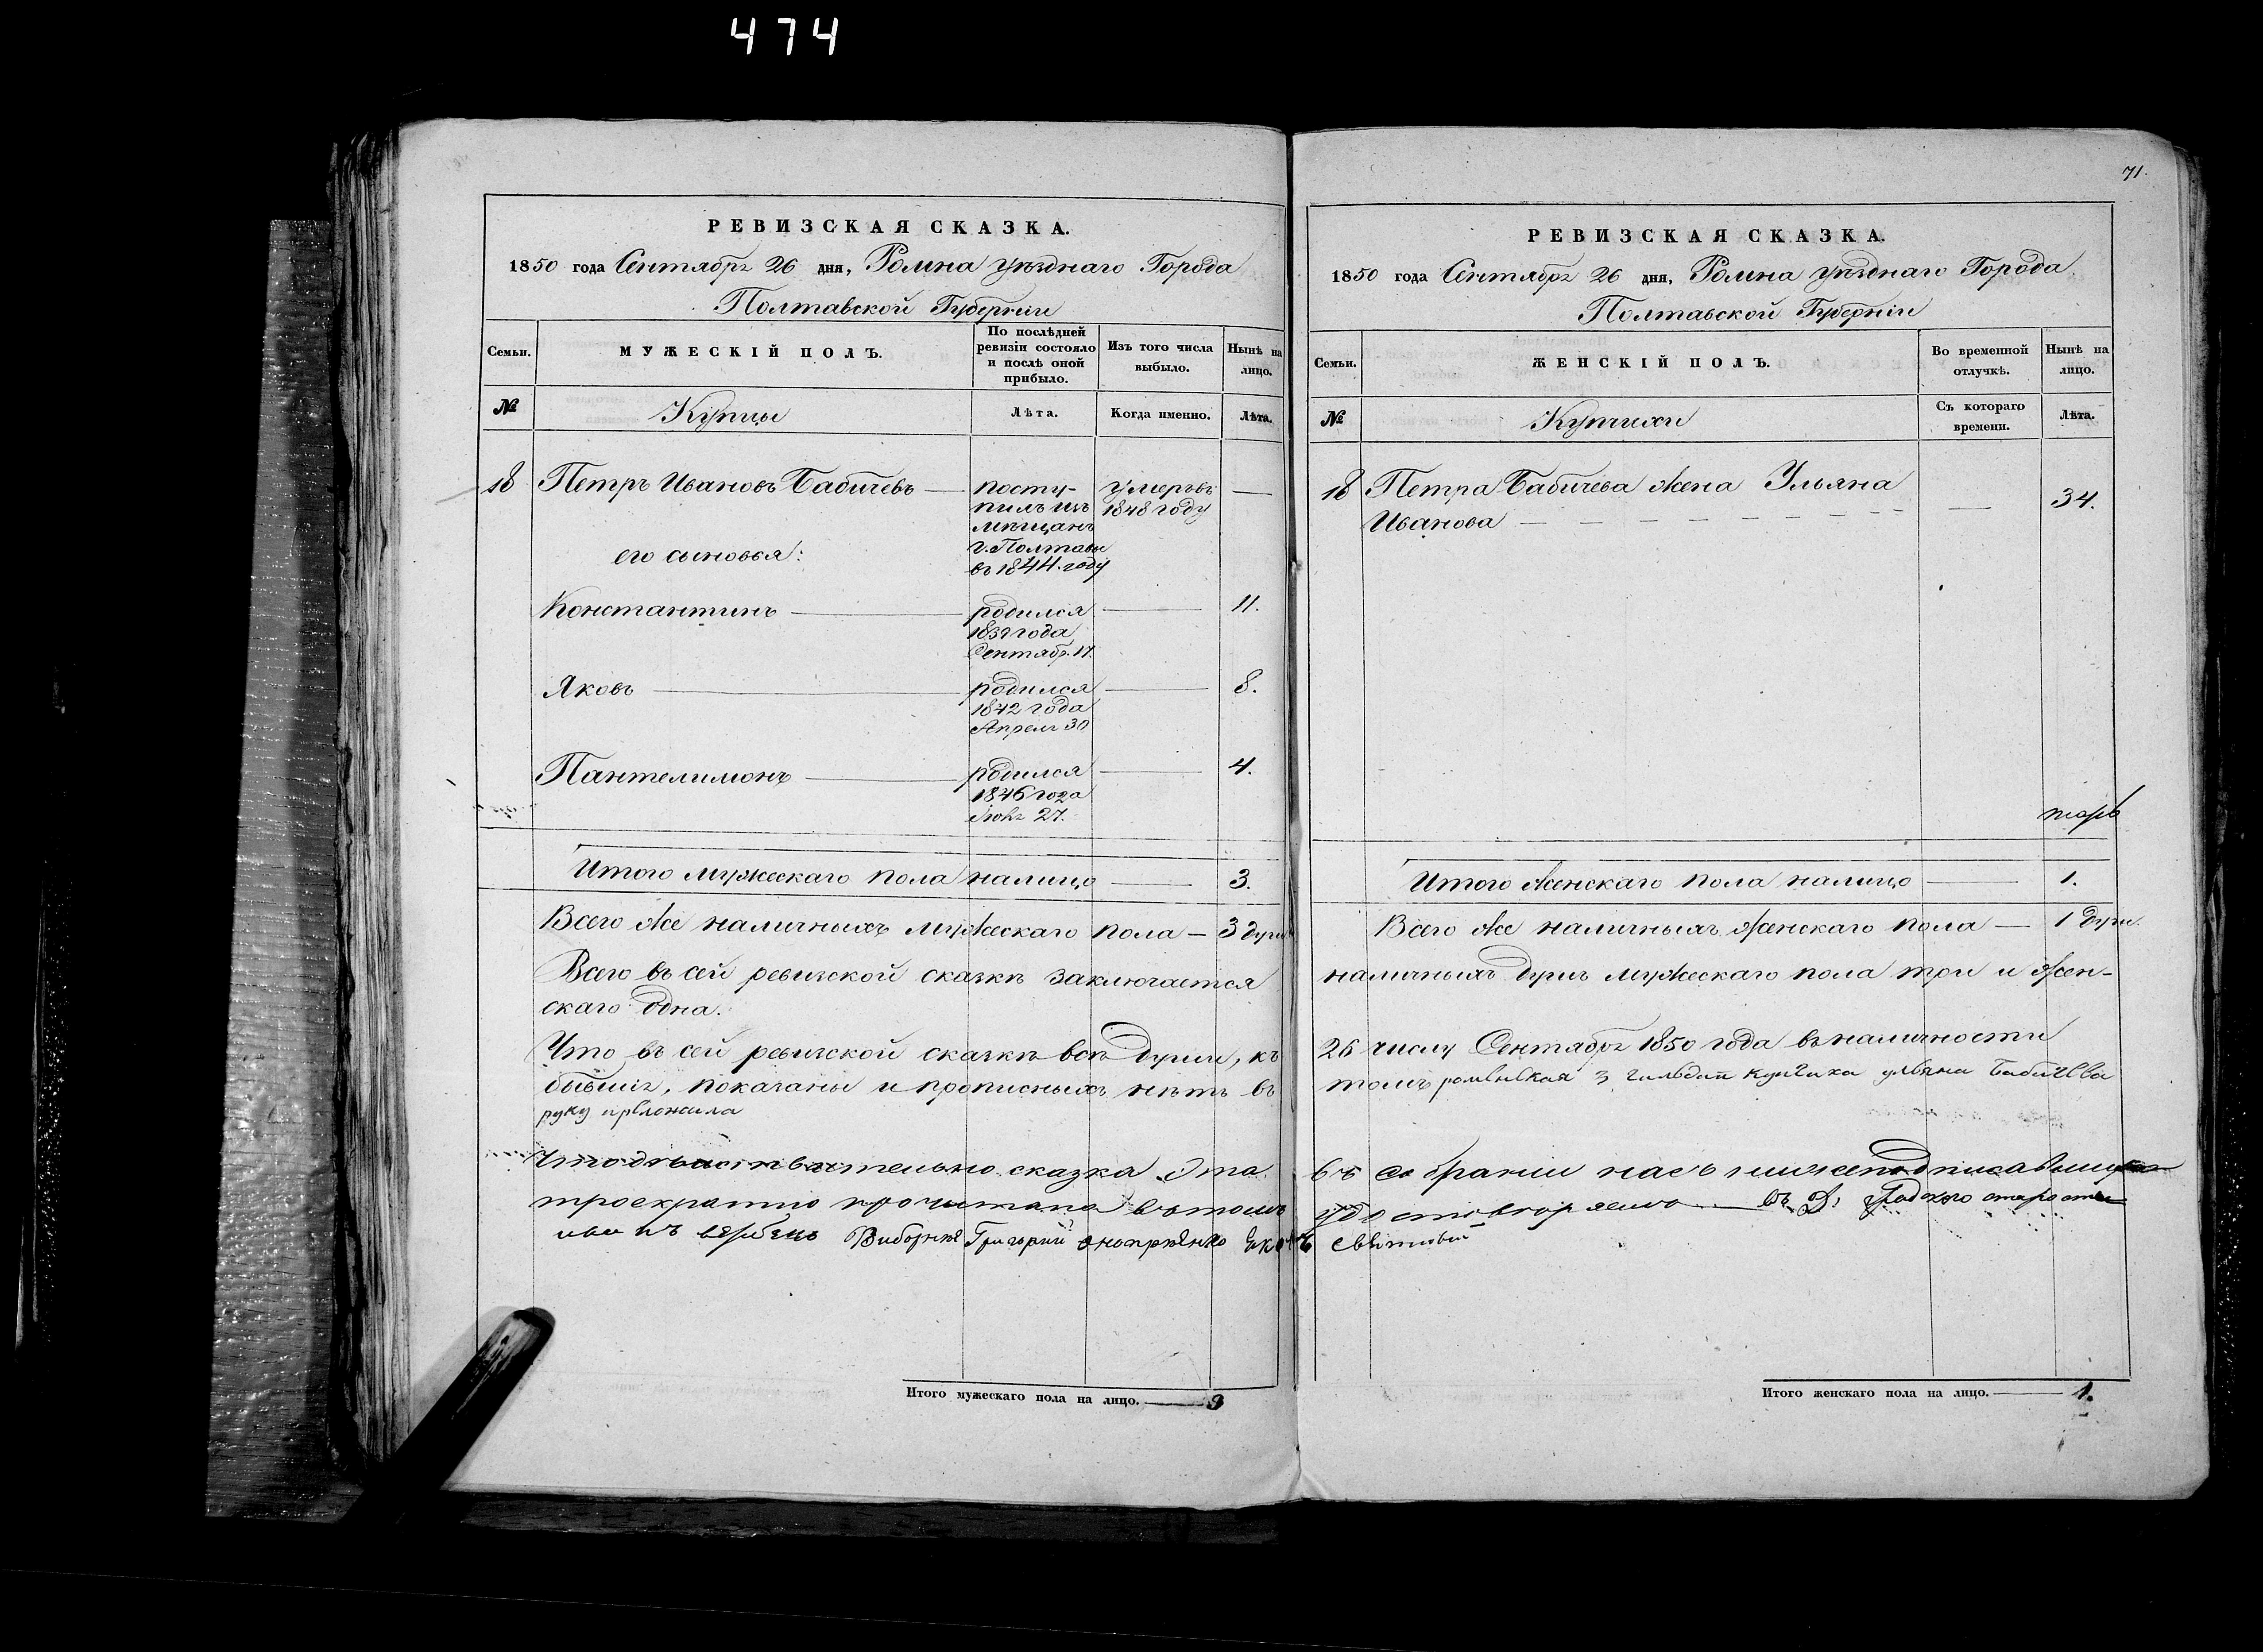 474
71.
РЕВИЗСКАЯ СКАЗКА.
1850 года Сентября 26 дня, Ромна уѣзднаго Города
Полтавской Губерніи
Семьи.
МУЖЕСКІЙ ПОЛЪ.
По послѣдней ревизіи состояло и послѣ оной прибыло.
Изъ того числа выбыло.
Нынѣ на лицо.
№
Купцы
Лѣта.
Когда именно.
Лѣта.
18 Петръ Ивановъ Бабичевъ — посту- умеръ въ —
пилъ изъ 1848 году
мѣщанъ
г. Полтавы
его сыновья:
въ 1844. году
Константинъ — родился — 11.
1839 года
Сентябр. 17.
Яковъ — родился — 8.
1842 года
Апреля 30
Пантелимонъ — родился — 4.
1846 года
Іюня 27.
Итого мужескаго пола налицо — 3.
Всего же наличныхъ мужескаго пола — 3 душ
Всего въ сей ревизской сказкѣ заключается
скаго одна.
Что въ сей ревизской сказкѣ всѣ души, къ
бывшія, показаны и прописныхъ нѣтъ въ
руку приложила
Что дѣйствительно сказка Эта
троекратно прочитана въ томъ
Виборній Григорий
Итого мужескаго пола на лицо. — 3
РЕВИЗСКАЯ СКАЗКА.
1850 года Сентября 26 дня, Ромна уѣзднаго Города
Полтавской Губерніи
Семьи.
ЖЕНСКІЙ ПОЛЪ.
Во временной отлучкѣ.
Нынѣ на лицо.
№
Купчихи
Съ котораго времени.
Лѣта.
18 Петра Бабичева жена Ульяна
Иванова — — 34.
Итого женскаго пола налицо — 1.
Всего же наличныхъ женскаго пола — 1 душ.
наличныхъ душъ мужескаго пола три и жен-
26 числу Сентября 1850 года въ наличности
томъ роменская 3 гильдии купчиха ульяна бабичева
въ собрании насъ нижеподписавшихся
удостовѣряемо — Градского старосты
Итого женскаго пола на лицо. — 1.